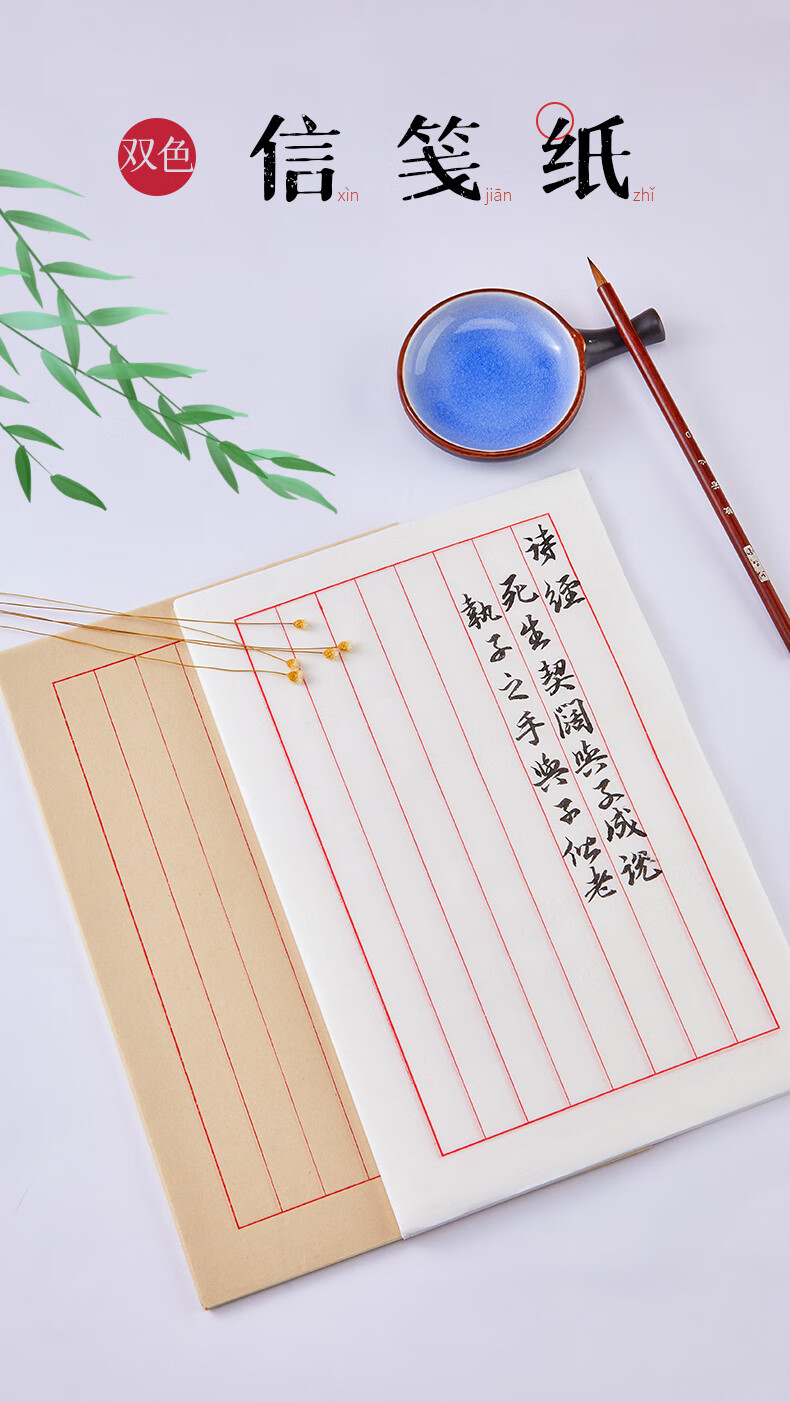 双色
信笺纸
xìn jiān zhǐ
诗经
死生契阔與子成说
執子之手與子偕老